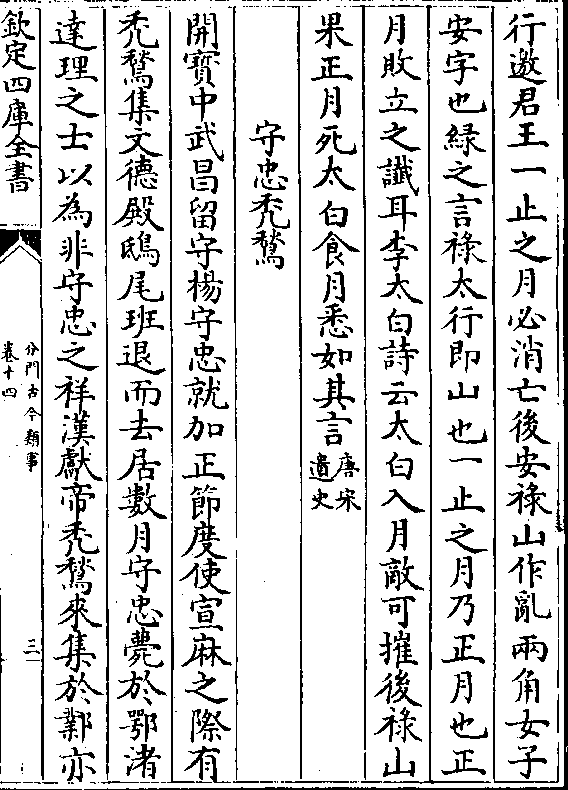 行邀君王一止之月必消亡後安祿山作亂兩角女子
安字也緑之言祿太行即山也一止之月乃正月也正
月敗立之讖耳李太白詩云太白入月敵可摧後祿山
果正月死太白食月悉如其言唐宋
遺史
守忠禿鶖
開寶中武昌留守楊守忠就加正節度使宣麻之際有
禿鶖集文德殿鴟尾班退而去居數月守忠薨於鄂渚
達理之士以為非守忠之祥漢獻帝禿鶖來集於鄴亦
欽定四庫全書
分門古今類事
卷十四
三